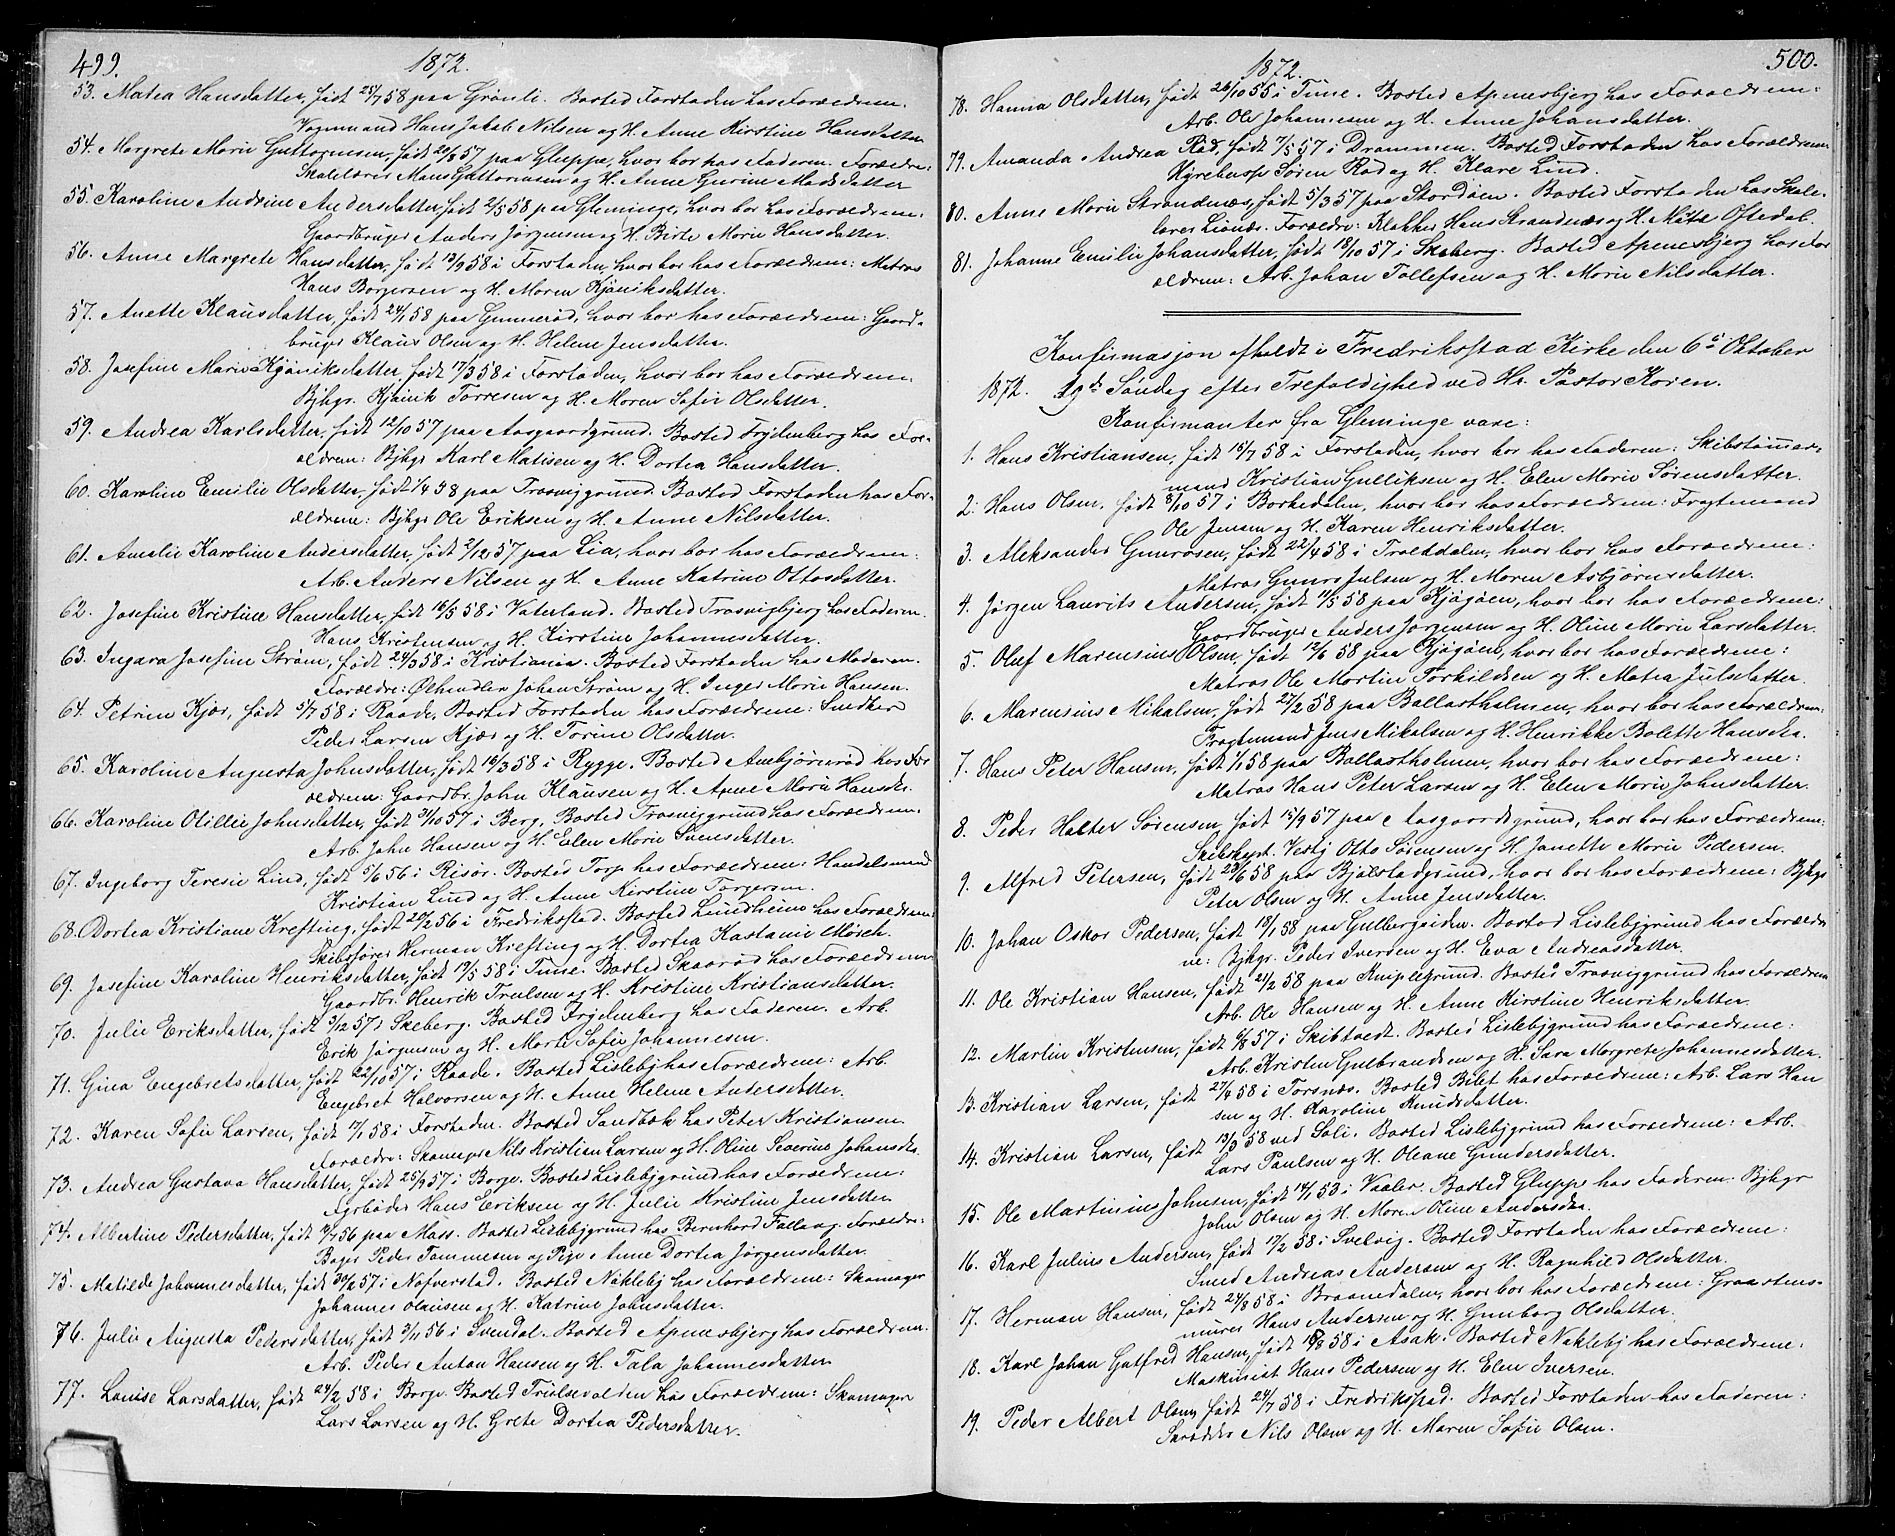 499.
1872.
53. Matea Hansdatter, født 25/7 58 paa Grønli. Bosted Forstaden hos Forældrene.
Vognmand Hans Jakob Nilsen og H. Anne Kirstine Hansdatter
54. Margrete Marie Guttormsen, født 20/8 57 paa Gluppe, hvor bor hos Faderen. Forældre:
Skolelærer Hans Guttormsen og H. Anne Gurine Madsdatter
55. Karoline Andrine Andersdatter, født 2/5 58 paa Gleminge, hvor bor hos Forældrene:
Gaardbruger Anders Jørgensen og H. Birte Marie Hansdatter.
56. Anne Margrete Hansdatter, født 13/9 58 i Forstaden, hvor bor hos Forældrene: Matros
Hans Borgersen og H. Maren Kjøniksdatter.
57. Anette Klausdatter, født 24/1 58 paa Gunnerød, hvor bor hos Forældrene: Gaard-
bruger Klaus Olsen og H. Helene Jensdatter.
58. Josefine Marie Kjøniksdatter, født 17/3 58 i Forstaden, hvor bor hos Forældrene.
Bjhgr. Kjønik Torresen og H. Maren Sofie Olsdatter.
59. Andrea Karlsdatter, født 12/10 57 paa Aasgaardgrund. Bosted Frydenberg hos For-
ældrene: Bjhgr Karl Matisen og H. Dortea Hansdatter.
60. Karoline Emilie Olsdatter, født 1/4 58 paa Trosviggrund. Bosted Forstaden hos For-
ældrene: Bjhgr Ole Eriksen og H. Anne Nilsdatter.
61. Amalie Karoline Andersdatter, født 2/12 57 paa Lia, hvor bor hos Forældrene:
Arb. Anders Nilsen og H. Anne Katrine Ottosdatter.
62. Josefine Kristine Hansdatter, født 16/5 58 i Vaterland. Bosted Trosvigbjerg hos Faderen.
Hans Kristensen og H. Kirstine Johannesdatter.
63. Ingara Josefine Strøm, født 24/3 58 i Kristiania. Bosted Forstaden hos Moderen.
Forældre: Ølhandler Johan Strøm og H. Inger Marie Hansen.
64. Petrine Kjær, født 5/7 58 i Raade. Bosted Forstaden hos Forældrene: Snedker
Peder Larsen Kjær og H. Torine Olsdatter.
65. Karoline Augusta Johnsdatter, født 16/3 58 i Rygge. Bosted Ambjørnrød hos For
ældrene: Gaardbr. John Klausen og H. Anne Marie Hansdr.
66. Karoline Otillie Johnsdatter, født 31/10 57 i Berg. Bosted Trosviggrund hos Forældrene.
Arb. John Hansen og H. Elen Marie Svensdatter.
67. Ingeborg Teresie Lind, født 5/6 56 i Risør. Bosted Torp hos Forældrene: Handelsmand
Kristian Lind og H. Anne Kirstine Torgersen.
68. Dortea Kristiane Krefting, født 20/2 56 i Fredrikstad. Bosted Lundheim hos Forældrene
Skibsfører Herman Krefting og H. Dortea Kastanie Mørch.
69. Josefine Karoline Henriksdatter, født 19/5 58 i Tune. Bosted Skaarød hos Forældrene
Gaardbr. Henrik Truelsen og H. Kristine Kristiansdatter.
70. Julie Eriksdatter, født 9/12 57 i Skeberg. Bosted Frydenberg hos Faderen. Arb.
Erik Jørgensen og H. Marte Sofie Johannesen.
71. Gina Engebretsdatter, født 22/10 57 i Raade. Bosted Lisleby hos Forældrene: Arb
Engebret Halvorsen og H. Anne Helene Andersdatter.
72. Karen Sofie Larsen, født 17/1 58 i Forstaden. Bosted Sandbæk hos Peter Kristiansen
Forældre: Skomagr Nils Kristian Larsen og H. Oline Severine Johansdr.
73. Andrea Gustava Hansdatter, født 25/9 57 i Borge. Bosted Lislebjgrund hos Forældrene:
Hans Eriksen og H. Julie Kristine Jensdatter
74. Albertine Pedersdatter, født 11/7 56 paa Moss. Bosted Lislebjgrund hos Bernhard Falla og Forældre:
Bager Peder Tommesen og Pige Anne Dortea Jørgensdatter.
75. Matilde Johannesdatter, født 30/2 57 i Nøfverstad. Bosted Naklebj hos Forældrene: Skomager
Johannes Olausen og H. Katrine Johnsdatter.
76. Julie Augusta Pedersdatter, født 3/11 56 i Svendal. Bosted Apenesbjerg hos Forældrene.
Arb. Peder Anton Hansen og H. Tala Johannesdatter
77. Lovise Larsdatter, født 24/2 58 i Borge. Bosted Trulsevolden hos Forældrene: Skomager
Lars Larsen og H. Grete Dortea Pedersdatter.
500.
1872.
78. Hanna Olsdatter, født 26/10 55 i Tune. Bosted Apenesbjerg hos Forældrene:
Arb. Ole Johannesen og H. Anne Johansdatter.
79. Amanda Andrea Rød, født 7/5 57 i Drammen. Bosted Forstaden hos Forældrene
Hyrekusk Søren Rød og H. Klare Lind.
80. Anne Marie Strandnæs, født 5/3 57 paa Stordøen. Bosted Forstaden hos Skole-
lærer Lionæs. Forældre: Klokker Hans Strandnæs og H. Mätte Oftedal.
81. Johanne Emilie Johansdatter, født 18/10 57 i Skeberg. Bosted Apenesbjerg hos For
ældrene: Arb. Johan Tollefsen og H. Marie Nilsdatter.
Konfirmasjon afholdt i Fredrikstad Kirke den 6te Oktober
1872. 19de Søndag efter Trefoldighed ved Hr. Pastor Koren.
Konfirmanter fra Gleminge vare:
1. Hans Kristiansen, født 15/7 58 i Forstaden, hvor bor hos Faderen: Skibstømmer-
mand Kristian Gulliksen og H. Elen Marie Sørensdatter.
2. Hans Olsen, født 8/10 57 i Borkedalen, hvor bor hos Forældrene: Fragtemand
Ole Jensen og H. Karen Henriksdatter.
3. Aleksander Gunrosen, født 22/4 58 i Trolddalen, hvor bor hos Forældrene:
Matros Gunro Julsen og H. Maren Asbjørnsdatter.
4. Jørgen Laurits Andersen, født 11/5 58 paa Kjøgøen, hvor bor hos Forældrene:
Gaardbruger Anders Jørgensen og H. Oline Marie Larsdatter.
5. Oluf Marensius Olsen, født 12/6 58 paa Kjøgøen, hvor bor hos Forældrene:
Matros Ole Martin Torkildsen og H. Matea Julsdatter.
6. Marensius Mikalsen, født 27/2 58 paa Ballastholmen, hvor bor hos Forældrene:
Fragtemand Jens Mikalsen og H. Henrikke Bolette Hansdtr.
7. Hans Peter Hansen, født 1/1 58 paa Ballastholmen, hvor bor hos Forældrene:
Matros Hans Peter Larsen og H. Elen Marie Johnsdatter.
8. Peder Halter Sørensen, født 15/9 57 paa Aasgaardsgrund, hvor bor hos Forældrene:
Skibskapt. Vestj Otto Sørensen og H. Janette Marie Pedersen.
9. Alfred Petersen, født 29/6 58 paa Bjølstadgrund, hvor bor hos Forældrene: Bjhgr
Peter Olsen og H. Anne Jensdatter.
10. Johan Oskar Pedersen, født 18/1 58 paa Gulbergsiden. Bosted Lislebjgrund hos Forældre
ne: Bjhgr. Peder Iversen og H. Eva Andreasdatter.
11. Ole Kristian Hansen, født 21/2 58 paa Kniplegrund. Bosted Trosviggrund hos Forældrene
Arb. Ole Hansen og H. Anne Kirstine Henriksdatter.
12. Martin Kristensen, født 6/8 57 i Skibtvedt. Bosted Lislebjgrund hos Forældrene:
Arb. Kristen Gulbrandsen og H. Sara Margrete Johannesdatter.
13. Kristian Larsen, født 27/4 58 i Torsnæs. Bosted Bilet hos Forældrene: Arb. Lars Han
sen og H. Karoline Knudsdatter.
14. Kristian Larsen, født 13/3 58 ved Soli. Bosted Lislebjgrund hos Forældrene: Arb.
Lars Paulsen og H. Oleane Gundersdatter.
15. Ole Martinius Johnsen, født 14/1 53 i Vaaler. Bosted Gluppe hos Faderen: Bjhgr
John Olsen og H. Maren Oline Andersdtr.
16. Karl Julius Andersen, født 17/2 58 i Svelvig. Bosted Forstaden hos Forældrene:
Smed Andreas Andersen og H. Ragnhild Olsdatter.
17. Herman Hansen, født 24/8 58 i Braanedalen, hvor bor hos Forældrene: Graastens-
murer Hans Andersen og H. Gunborg Olsdatter.
18. Karl Johan Gotfred Hansen, født 16/8 58 i Asak. Bosted Naklebj hos Forældrene:
Maskinist Hans Pedersen og H. Elen Iversen.
19. Peder Albert Olsen, født 24/7 58 i Fredrikstad. Bosted Forstaden hos Faderen:
Skrædder Nils Olsen og H. Maren Sofie Olsen.